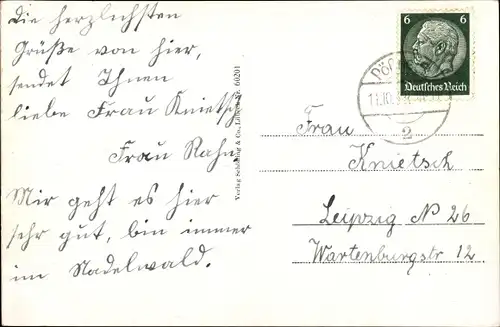 Die herzlichsten
Grüße von hier,
sendet Ihnen
liebe Frau Knietsch
Frau Rahn
Mir geht es hier
sehr gut, bin immer
im Nadelwald.
Verlag Schöning & Co., Lübeck 60201
6 6
Deutsches Reich
2
Frau
Knietsch
Leipzig N 26
Wartenburgstr 12.